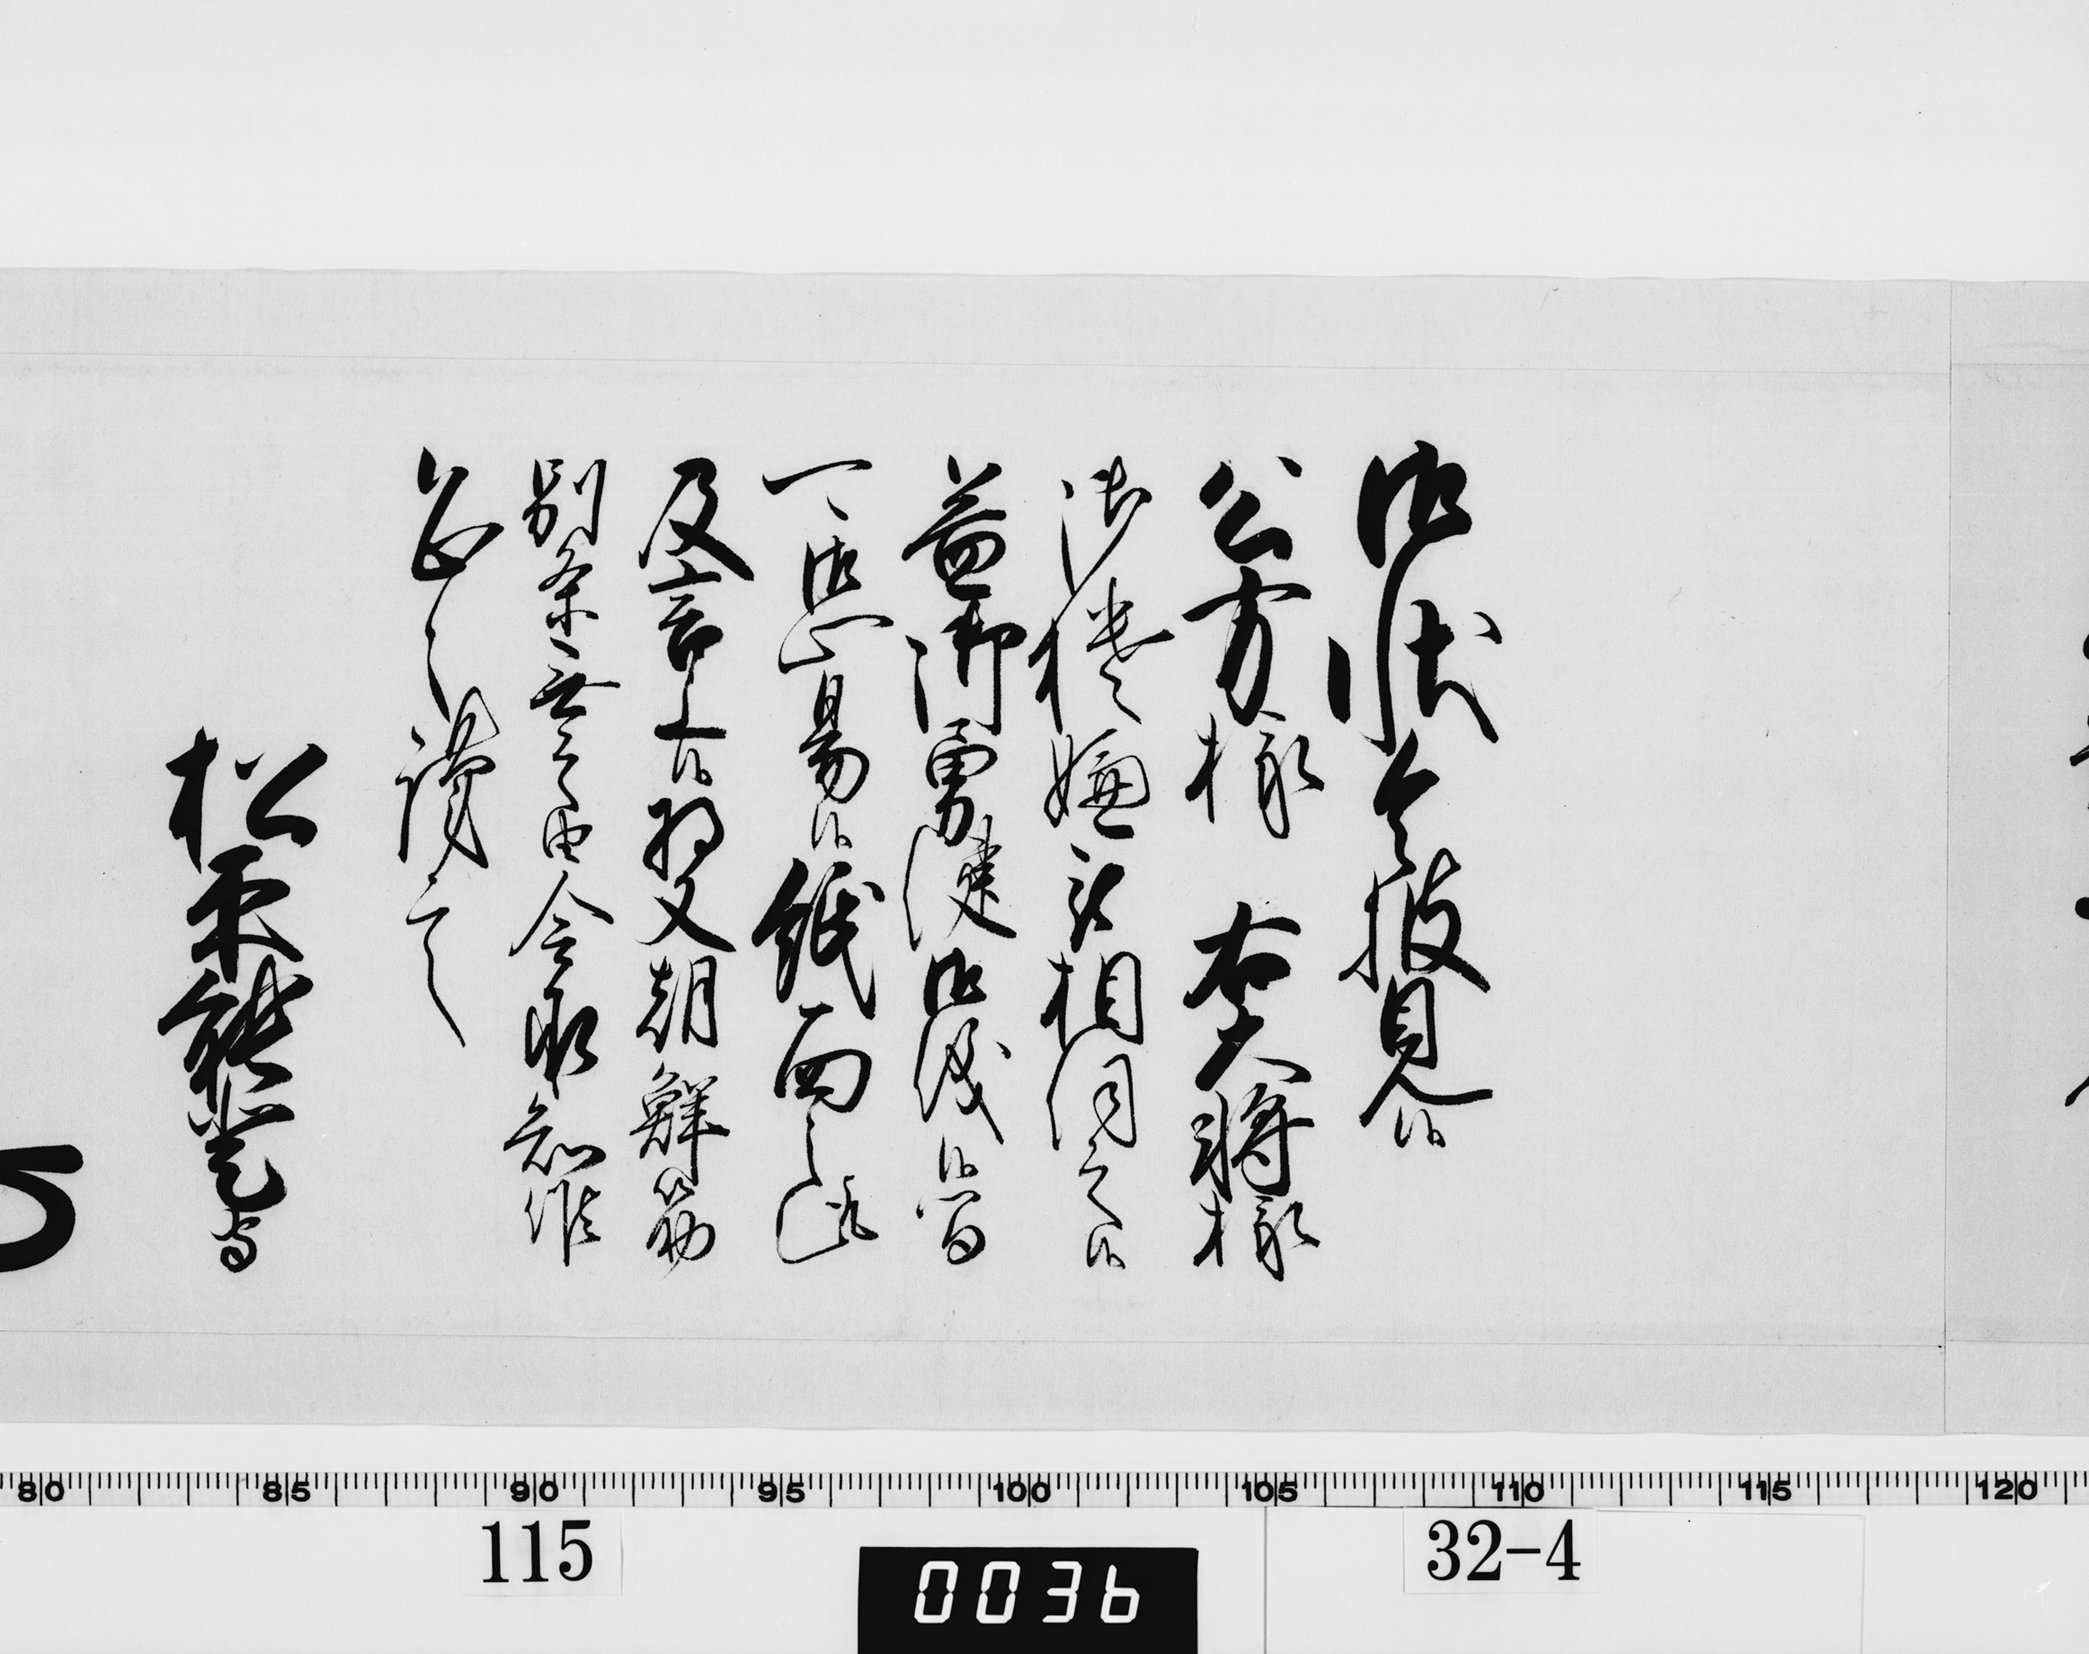 御状令披見候
公方様 右大将様
御機嫌被相伺之候
益御勇健御儀候間
可御心易候紙面之趣
及言上候将又朝鮮筋
別条無之由令承知候
恐々謹言
松平能登守
80 85 90 95 100 105 110 115 120
115
0036
32-4